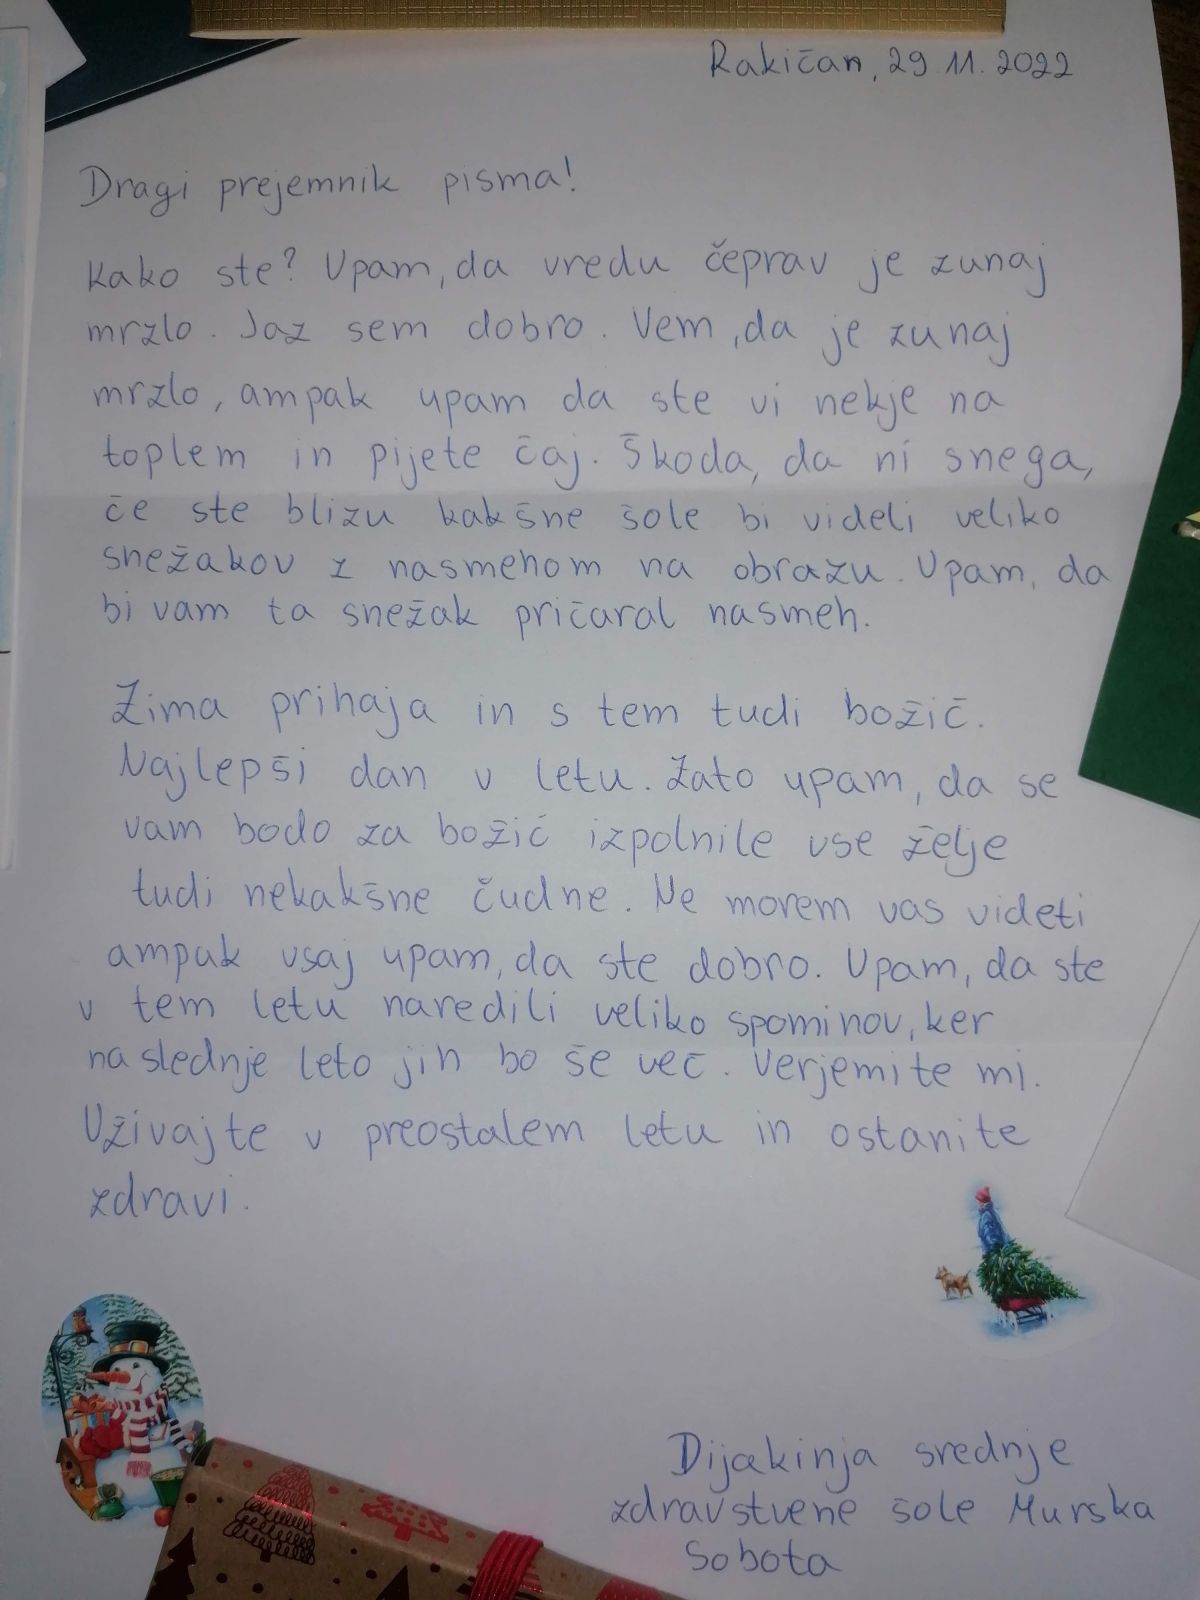 Rakičan, 29 11. 2022
Dragi prejemnik pisma!
Kako ste? Upam, da vredu čeprav je zunaj
mrzlo. Jaz sem dobro. Vem, da je zunaj
mrzlo, ampak upam da ste vi nekje na
toplem in pijete čaj. Škoda, da ni snega,
če ste blizu kakšne šole bi videli veliko
snežakov z nasmehom na obrazu. Upam, da
bi vam ta snežak pričaral nasmeh.
Zima prihaja in s tem tudi božič.
Najlepši dan v letu. Zato upam, da se
vam bodo za božič izpolnile vse želje
tudi nekakšne čudne. Ne morem vas videti
ampak vsaj upam, da ste dobro. Upam, da ste
v tem letu naredili veliko spominov, ker
naslednje leto jih bo še več. Verjemite mi.
Uživajte v preostalem letu in ostanite
zdravi.
Dijakinja srednje
zdravstvene šole Murska
Sobota